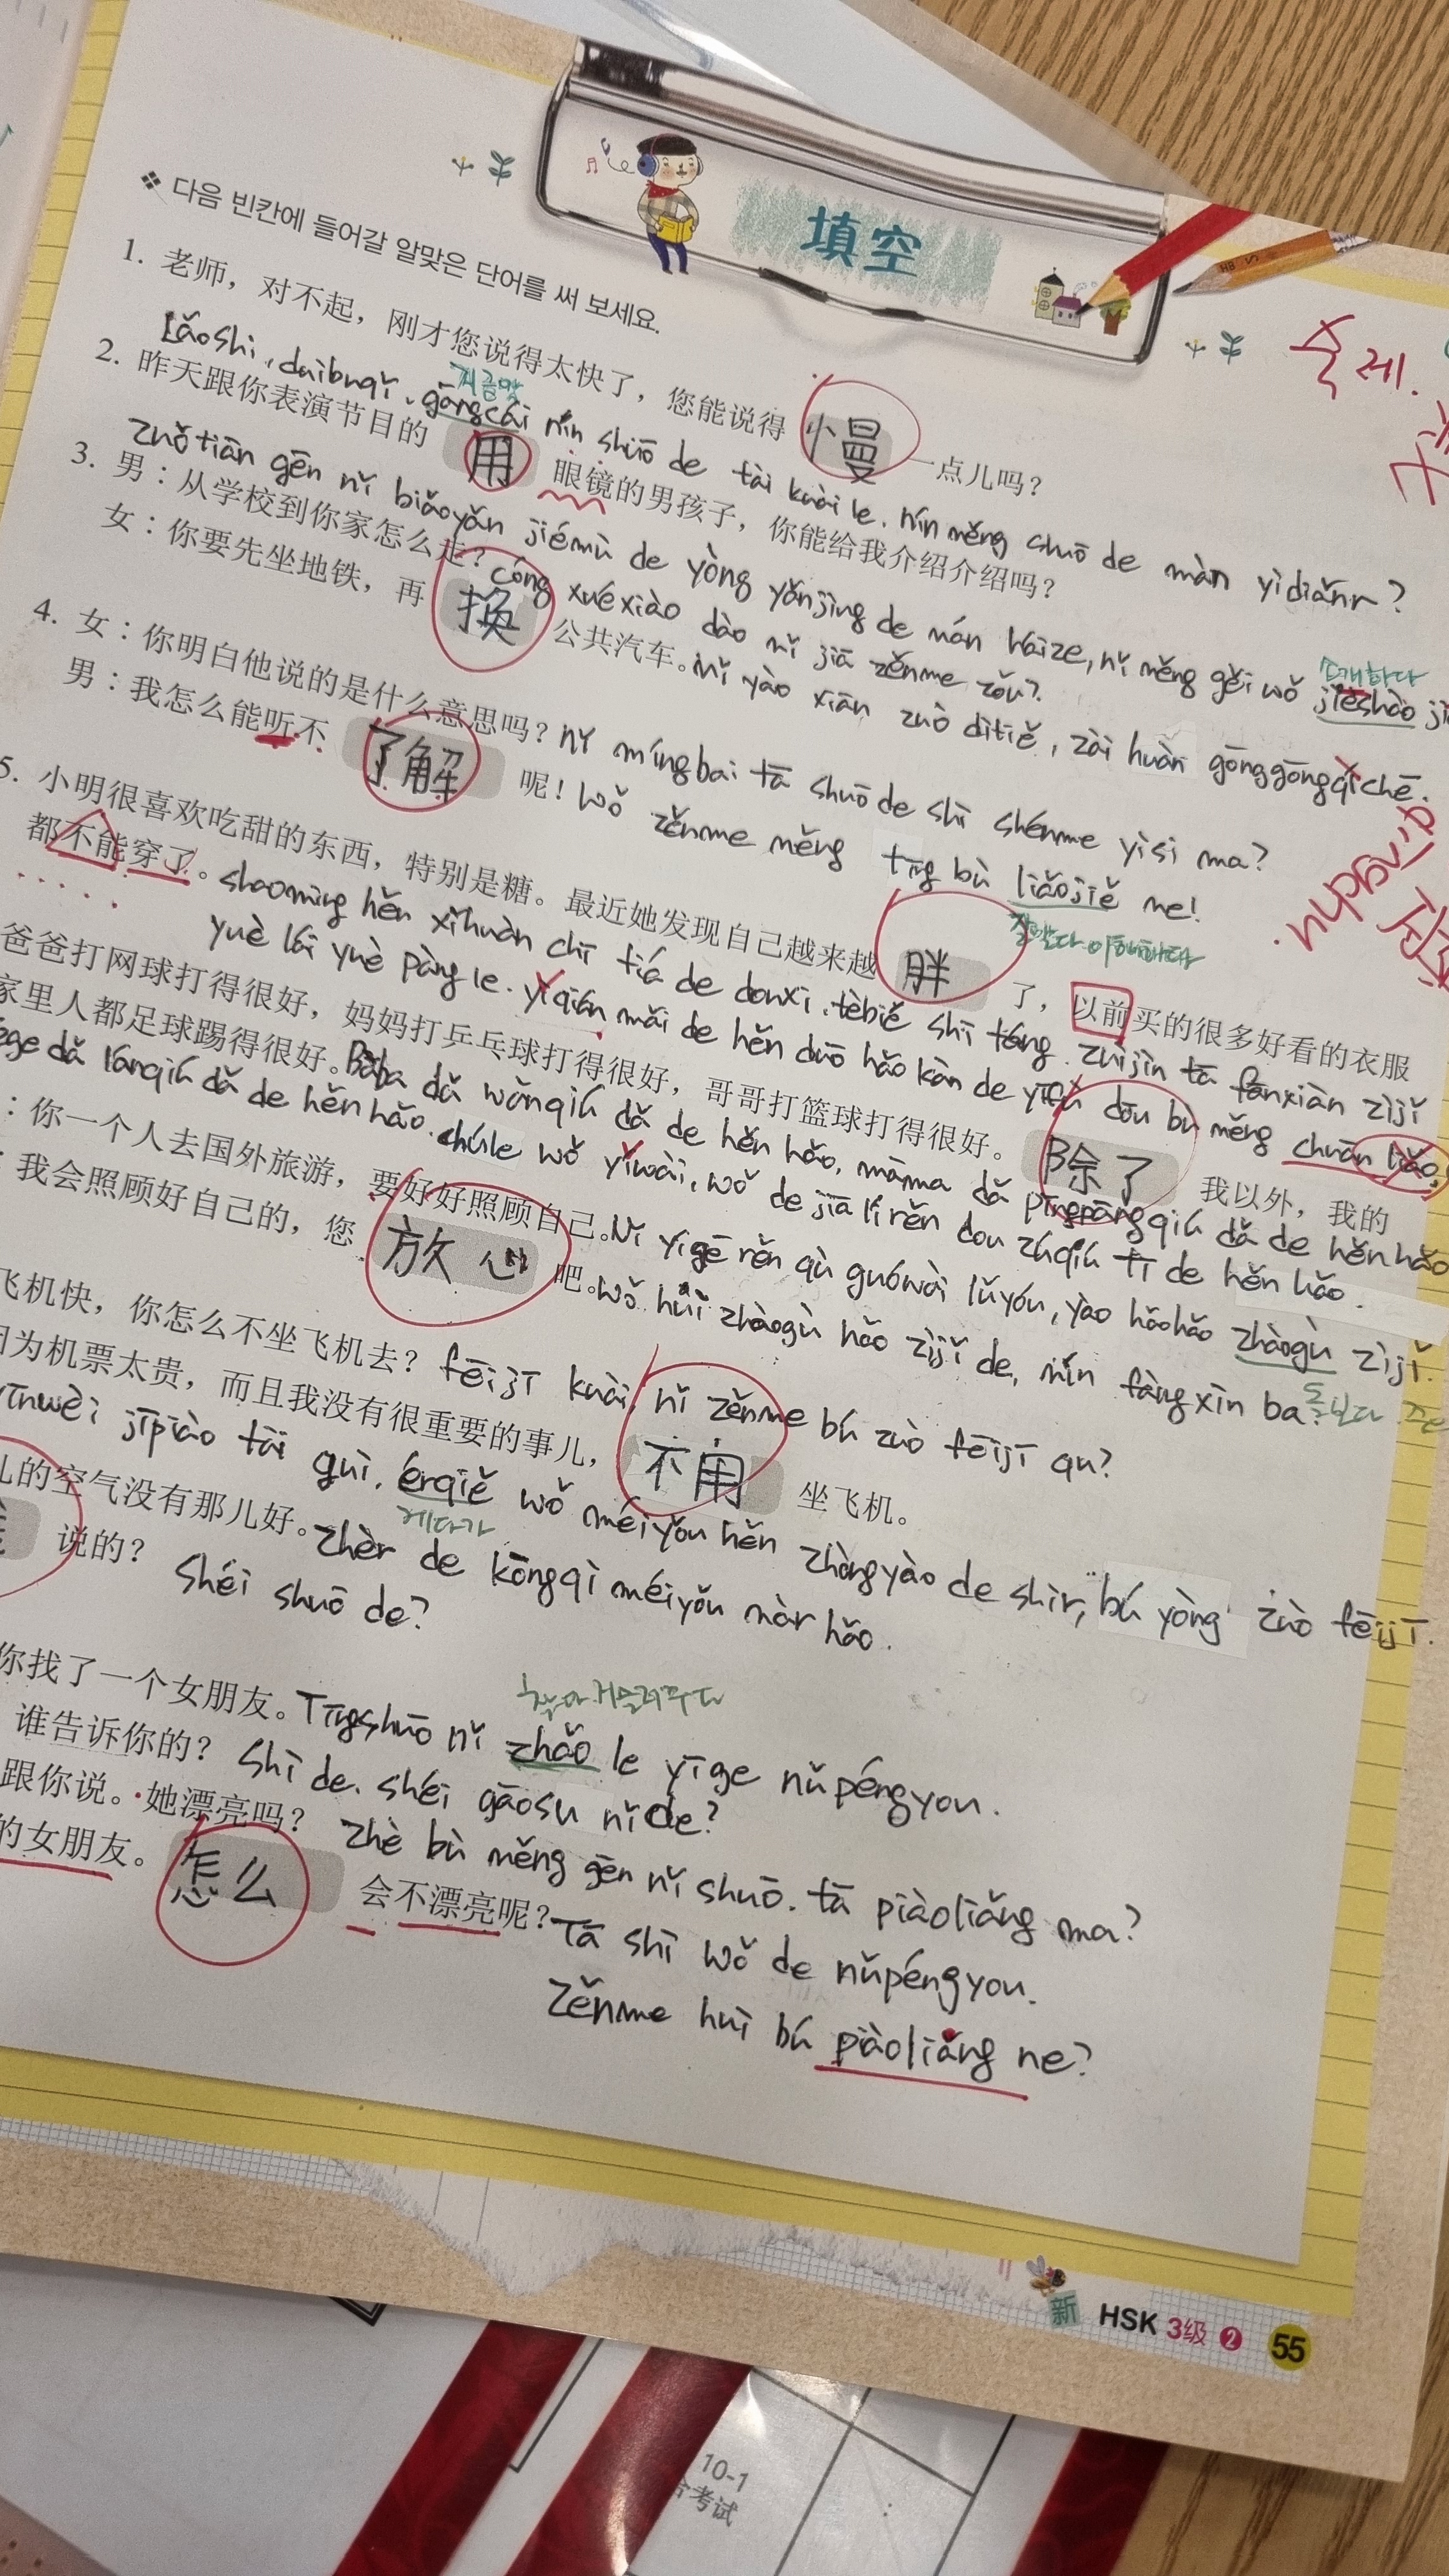 填空
❖ 다음 빈칸에 들어갈 알맞은 단어를 써 보세요.
숙제.
1. 老师，对不起，刚才您说得太快了，您能说得 慢 一点儿吗？
지금막
Lǎoshi, duìbuqǐ, gāngcái nín shuō de tài kuài le. nín měng shuō de màn yìdiǎnr?
2. 昨天跟你表演节目的 用 眼镜的男孩子，你能给我介绍介绍吗？
zuǒtiān gēn nǐ biǎoyǎn jiémù de yòng yǎnjìng de nán háize, nǐ měng gěi wǒ jièshào
소개하다
3. 男：从学校到你家怎么走？
cóng xuéxiào dào nǐ jiā zěnme zǒu?
女：你要先坐地铁，再 换 公共汽车。
nǐ yào xiān zuò dìtiě, zài huàn gōnggōngqìchē.
4. 女：你明白他说的是什么意思吗？
nǐ míngbai tā shuō de shì shénme yìsi ma?
男：我怎么能听不 了解 呢！
wǒ zěnme měng tīng bù liǎojiě ne!
5. 小明很喜欢吃甜的东西，特别是糖。最近她发现自己越来越 胖 了，以前买的很多好看的衣服
都不能穿了。
shaomíng hěn xǐhuàn chī tiá de donxi, tèbié shī táng. zuìjìn tā fānxiàn zìjǐ
yuè lái yuè pàng le. yǐqián mǎi de hěn duō hǎo kàn de yīfu dōu bu měng chuān liǎo.
爸爸打网球打得很好，妈妈打乒乓球打得很好，哥哥打篮球打得很好。 除了 我以外，我的
家里人都足球踢得很好。
Bàba dǎ wǎngqiú dǎ de hěn hǎo, māma dǎ pīngpāngqiú dǎ de hěn hǎo
ge dǎ lánqiú dǎ de hěn hǎo. chúle wǒ yǐwài, wǒ de jiā lǐ rén dou zúqiú tī de hěn hǎo.
：你一个人去国外旅游，要好好照顾自己。
Nǐ yígē rěn qù guówài lǚyóu, yào hǎohǎo zhàogù zìjǐ.
：我会照顾好自己的，您 放心 吧。
wǒ huì zhàogù hǎo zìjǐ de, nín fàngxīn ba.
飞机快，你怎么不坐飞机去？
fēijī kuài, nǐ zěnme bú zuò fēijī qu?
因为机票太贵，而且我没有很重要的事儿， 不用 坐飞机。
yīnwèi jīpiào tài guì, érqiě wǒ méiyǒu hěn zhòngyào de shìr, bú yòng zuò fēijī.
게다가
儿的空气没有那儿好。
Zhèr de kōngqì méiyǒu nàr hǎo.
说的？
Shéi shuō de?
你找了一个女朋友。
Tīngshuō nǐ zhǎo le yīge nǔpéngyou.
谁告诉你的？
Shì de. shéi gāosu nǐ de?
跟你说。她漂亮吗？
zhè bù měng gēn nǐ shuō. tā piàoliǎng ma?
的女朋友。 怎么 会不漂亮呢？
Tā shī wǒ de nǔpéngyou.
Zěnme huì bú piàoliǎng ne?
新 HSK 3级 ❷ 55
10-1
合考试